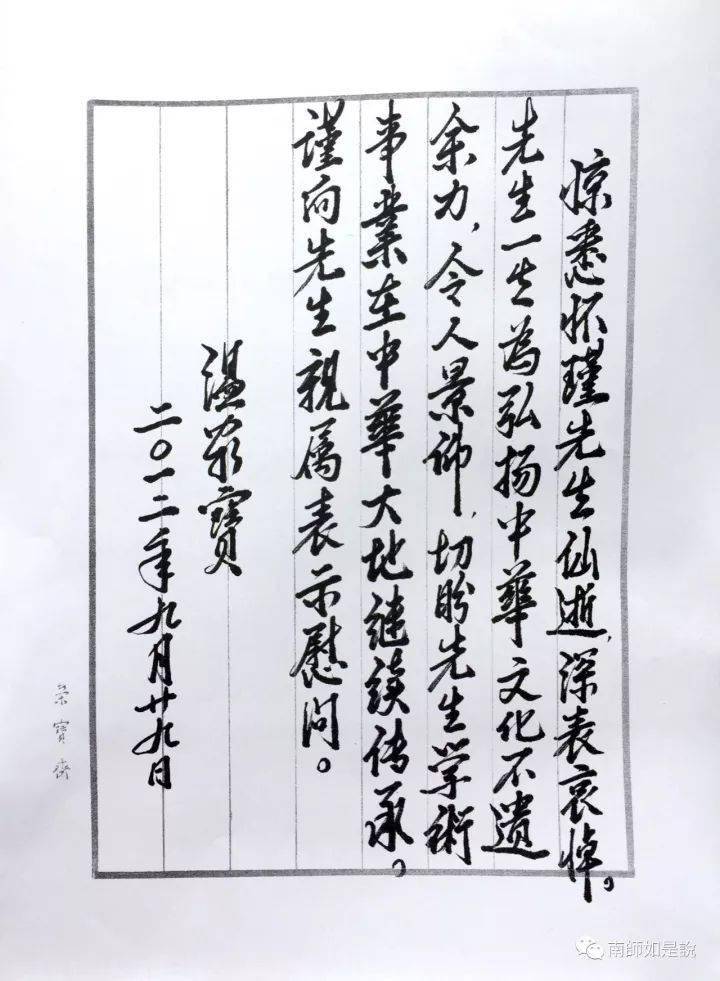 惊悉怀瑾先生仙逝,深表哀悼。
先生一生为弘扬中華文化不遗
余力,令人景仰,切盼先生学術
事業在中華大地继续传承。
谨向先生親属表示慰问。
温家寶
二〇一二年九月廿九日
荣寶斋
南師如是說